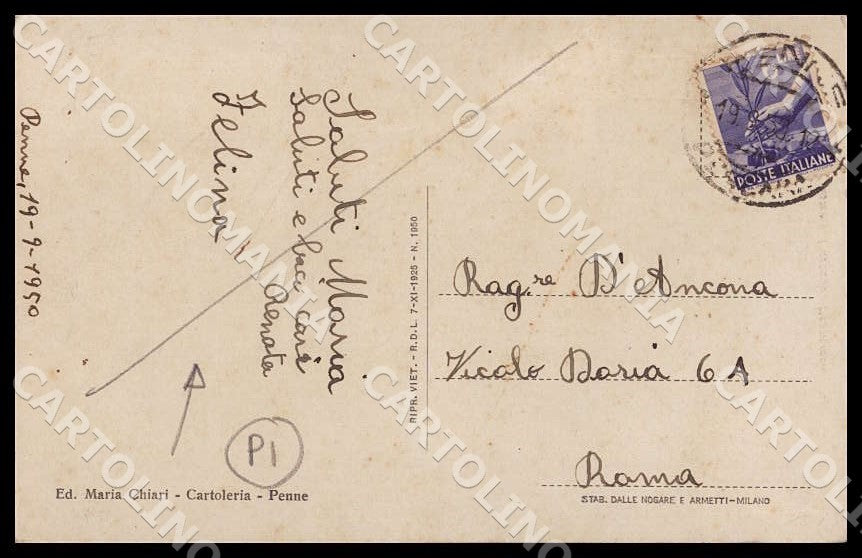 Penne, 19-9-1950
Saluti Maria
Saluti e baci cari
Renata
Zelina
P1
Ed. Maria Chiari - Cartoleria - Penne
RIPR. VIET. - R.D.L. 7-XI-1925 - N. 1950
POSTE ITALIANE
Rag.re D'Ancona
Vicolo Doria 6 A
Roma
STAB. DALLE NOGARE E ARMETTI-MILANO
CARTOLINOMANIA